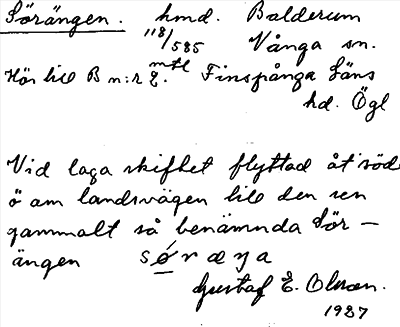 Sörängen. hmd. Balderum
118/585 Vånga sn.
Hör till B n:r 2. mtl Finspånga läns
hd. Ögl
Vid laga skiftet flyttad åt söd
ö om landsvägen till den sen
gammalt så benämnda Sör-
ängen sǿræŋa
Gustaf E. Olsson.
1927